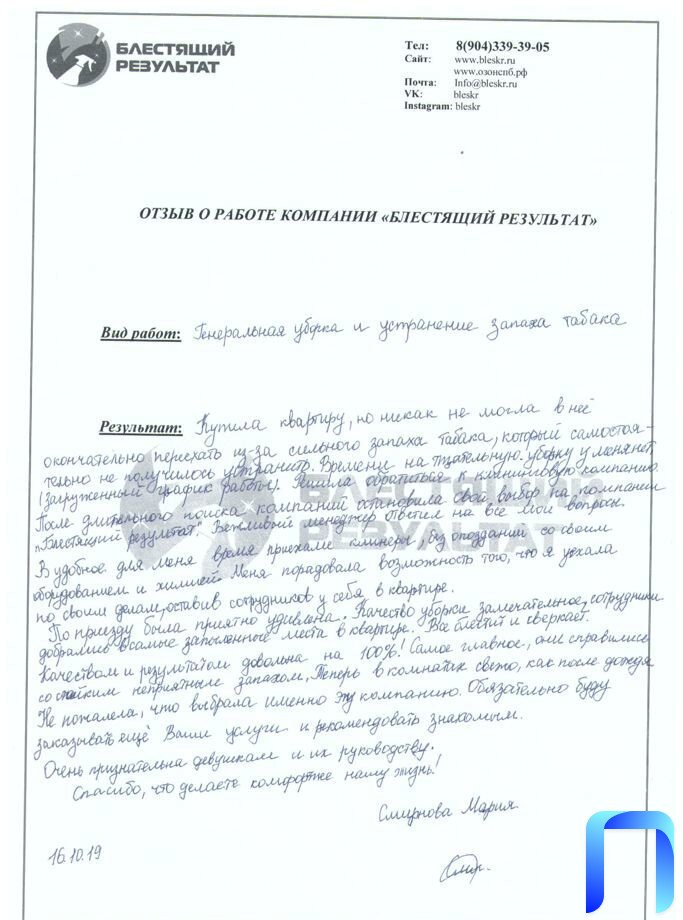 БЛЕСТЯЩИЙ
РЕЗУЛЬТАТ
Тел: 8(904)339-39-05
Сайт: www.bleskr.ru
www.озонспб.рф
Почта: Info@bleskr.ru
VK: bleskr
Instagram: bleskr
ОТЗЫВ О РАБОТЕ КОМПАНИИ «БЛЕСТЯЩИЙ РЕЗУЛЬТАТ»
Вид работ: Генеральная уборка и устранение запаха табака
Результат: Купила квартиру, но никак не могла в неё
окончательно переехать из-за сильного запаха табака, который самостоя-
тельно не получилось устранить. Времени на тщательную уборку у меня нет
(загруженный график работы). Решила обратиться к клининговую компанию
После длительного поиска компаний остановила свой выбор на компании
"Блестящий результат". Вежливый менеджер ответил на все мои вопросы.
В удобное для меня время приехали клинеры, без опозданий со своим
оборудованием и химией. Меня порадовала возможность того, что я уехала
по своим делам, оставив сотрудников у себя в квартире.
По приезду была приятно удивлена. Качество уборки замечательное, сотрудники
добрались в самые запыленные места в квартире. Все блестит и сверкает.
Качеством и результатом довольна на 100%! Самое главное, они справились
со стойким неприятным запахом. Теперь в комнатах свежо, как после дождя
Не пожалела, что выбрала именно эту компанию. Обязательно буду
заказывать ещё Ваши услуги и рекомендовать знакомым.
Очень признательна девушкам и их руководству.
Спасибо, что делаете комфортже нашу жизнь!
Смирнова Мария
16.10.19
БЛЕСТЯЩИЙ
РЕЗУЛЬТАТ